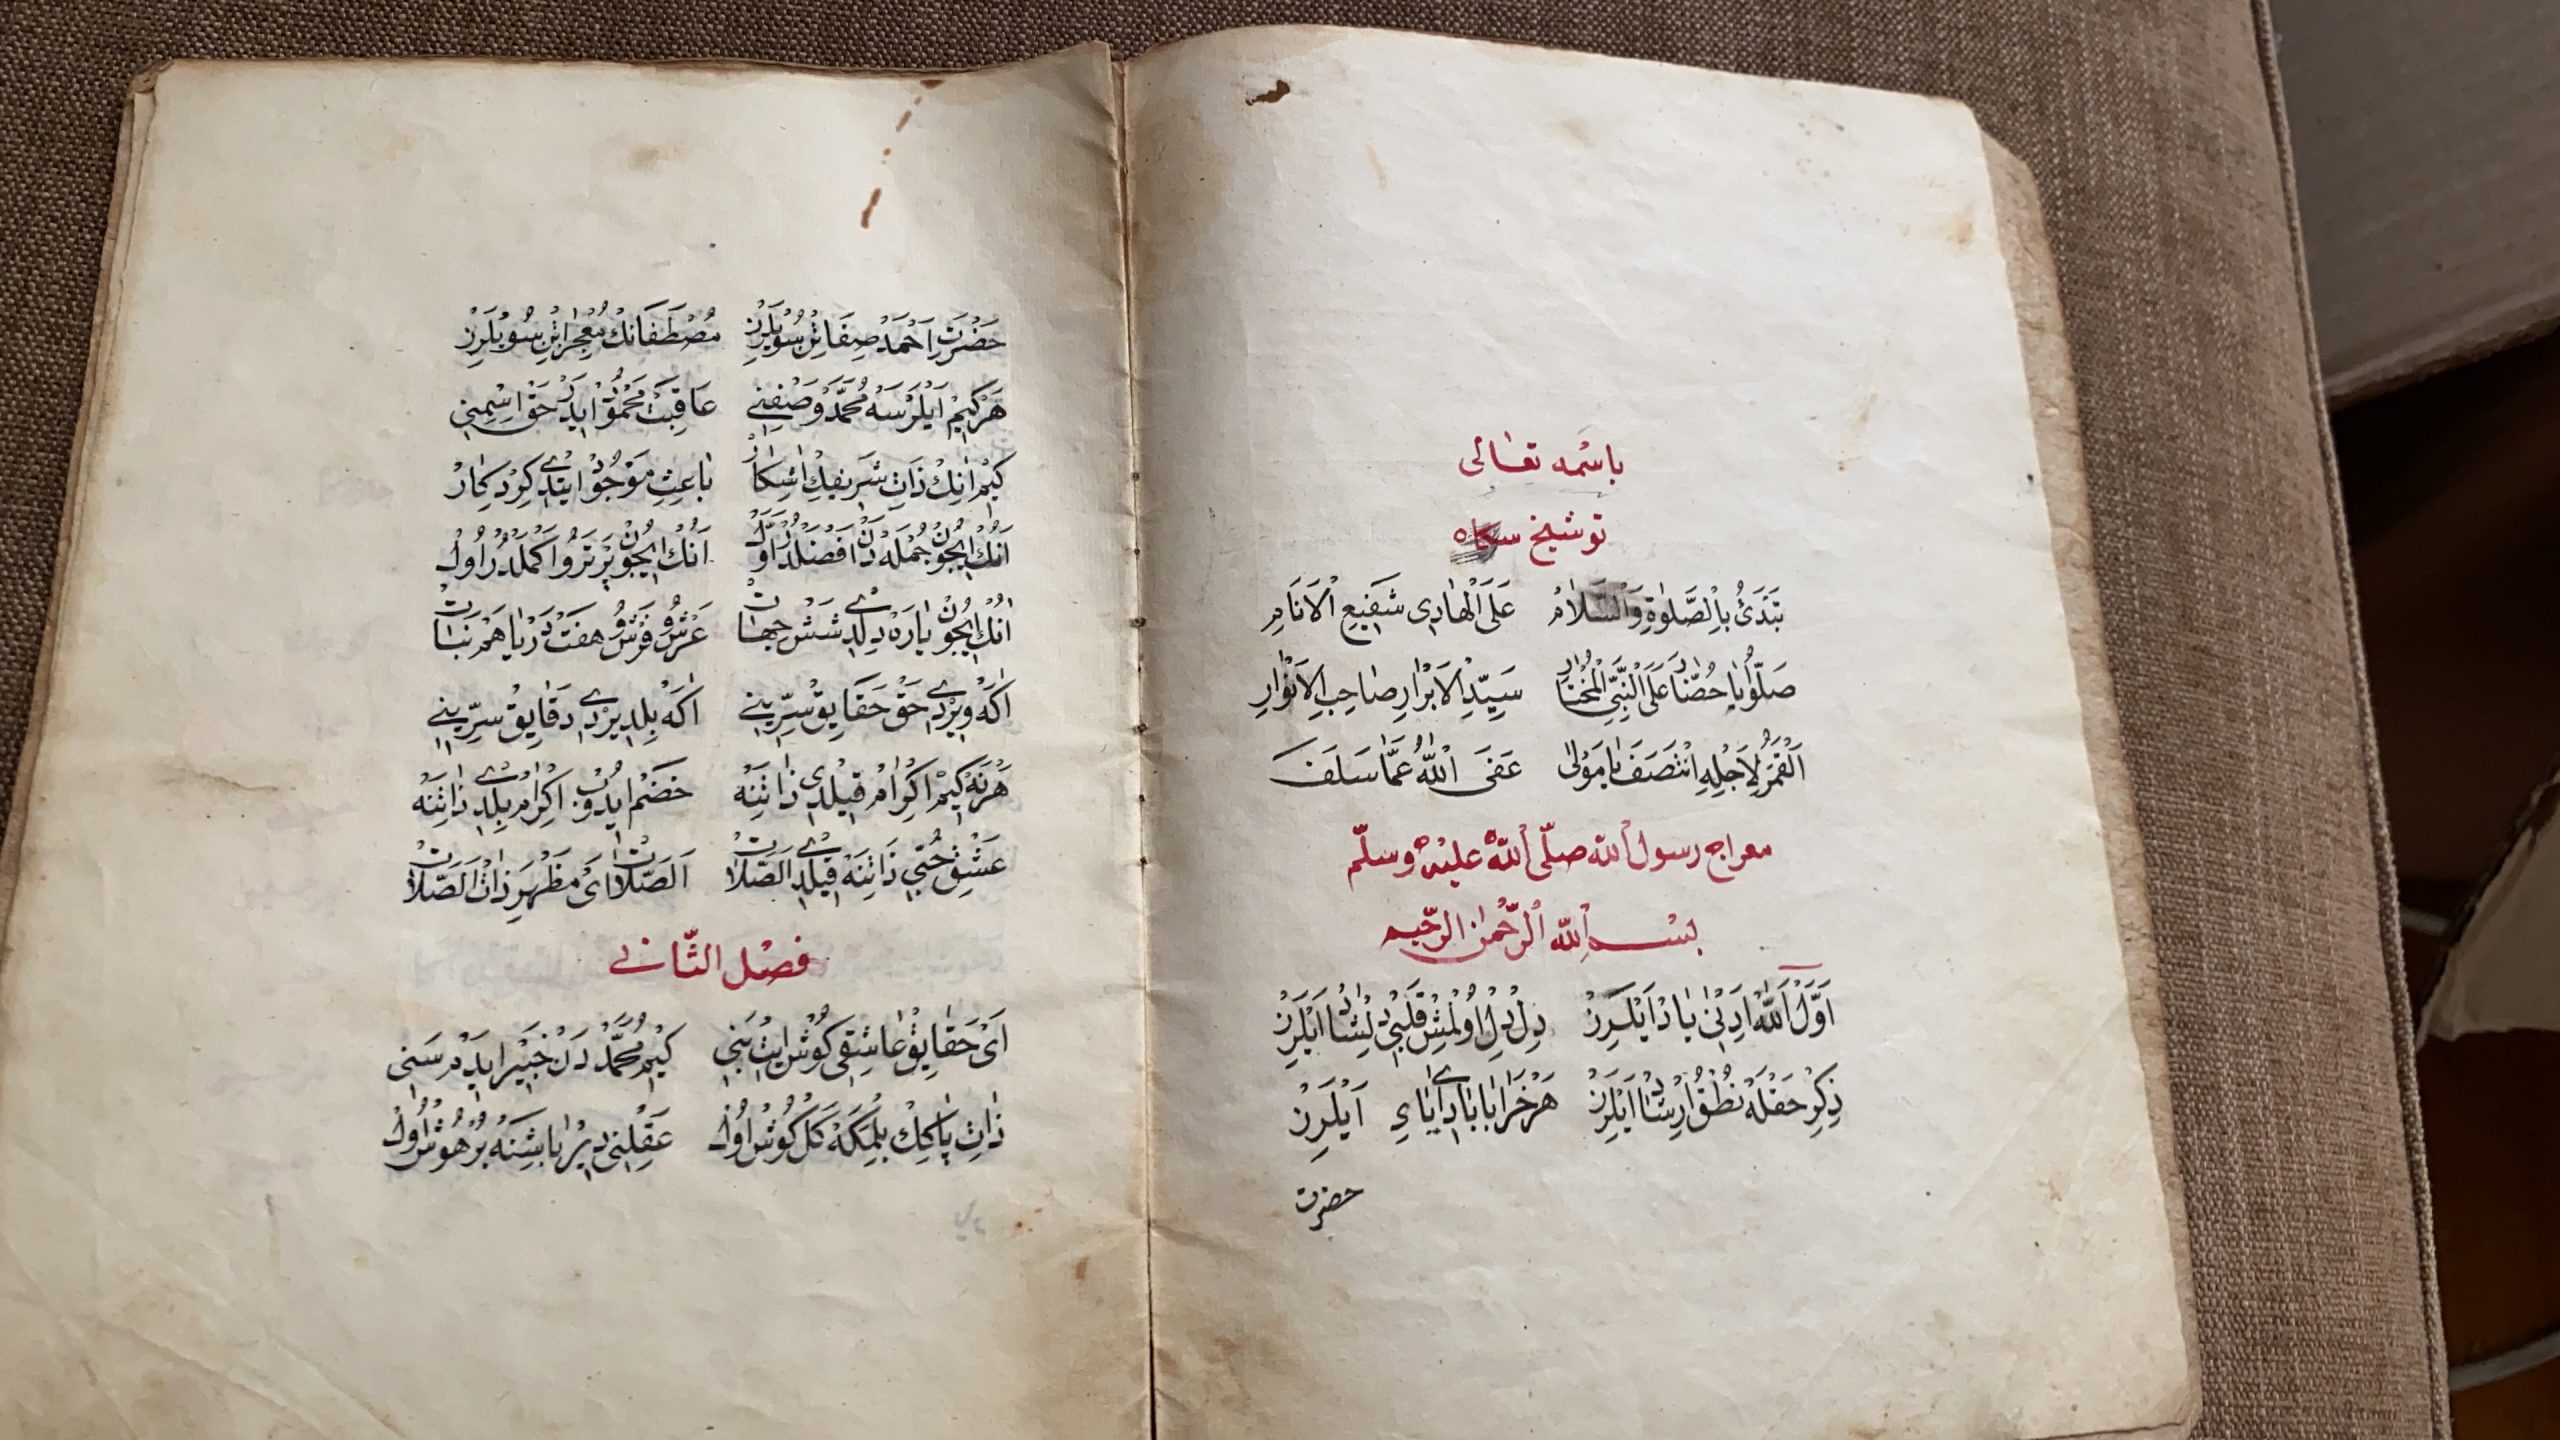 باسمه تعالى
توشيخ سكاه
نَبْتَدِئُ بِالصَّلٰوةِ وَالسَّلَامُ عَلَى الْهَادِى شَفِيعِ الْاَنَامِ
صَلُّوا يَا حُضَّنَا عَلَى النَّبِىِّ الْمُخْتَارِ سَيِّدِ الْاَبْرَارِ صَاحِبِ الْاَنْوَارِ
اَلْقَمَرُ لِاَجْلِهِ انْتَصَفَ يَا مَوْلٰى عَفَى اللّٰهُ عَمَّا سَلَفَ
معراج رسول الله صلّى اللّٰه عليه وسلّم
بسم الله الرّحمٰن الرّحيم
اَوَّلْ اَللّٰهْ ادِنِى يَادْ اَيْلَرِزْ دِلْ دِلْ اُولْمِشْ قَلْبِى دِلْشَادْ اَيْلَرِزْ
ذِكْرِ حَقْلَه نُطْقُ اِرْشَادْ اَيْلَرِزْ هَرْ خَرَابَ ابَادِى ايَاىِ اَيْلَرِزْ
حضرت
حَضْرَتِ اَحْمَدْ صِفَاتِنْ سُويْلَرِزْ مُصْطَفَانِكْ مُعْجِزَاتِنْ سُويْلَرِزْ
هَرْ كِيمْ اَيْلَرْسَه مُحَمَّدْ وَصْفِنِى عَاقِبَتْ مَحْمُودْ ايدَرْ حَقْ اِسْمِنِى
كِيمْ اَنِكْ ذَاتِ شَرِيفِكْ اٰشِكَارْ بَاعِثِ مَوْجُودْ ايتْدِى كِرْدِكَارْ
اَنُكْ ايچُونْ جُمْلَه دَنْ اَفْضَلْدُرْ اَوَّلْ اَنُكْ ايچُونْ بَرْتَرُ و اَكْمَلْدُرْ اُولْ
اَنُكْ ايچُونْ يَارَه دِلْدِى شَشْ جِهَاتْ عَرْشُ و فَرْشُ و هَفْتْ دَرْيَا هَمْ نَبَاتْ
اَكَه وِيرْدِى حَقْ حَقَايِقْ سِرِّينِى اَكَه بِلْدِيرْدِى دَقَايِقْ سِرِّينِى
هَرْ نَه كِيمْ اِكْرَامْ قِيلْدِى ذَاتِنَه خَضْمْ ايدُوبْ اِكْرَامْ بِلْدِى ذَاتِنَه
عَشْقِ حُبِّى ذَاتِنَه قِيلْدِى الصَّلَاتْ اَلصَّلَاتْ اَىْ مَظْهَرِ ذَاتْ الصَّلَاتْ
فصل الثّانى
اَىْ حَقَايِقْ عَاشِقِى كُوشْ ايتْ بَنِى كِيمْ مُحَمَّدْ دَنْ خَبِيرْ ايدَمْ سَنِى
ذَاتِ پَاكِكْ بِلْمِكَه كَلْ كُوشْ اُولْ عَقْلِنِى دِيرْ بَاشِنَه پُرْ هُوشْ اُولْ